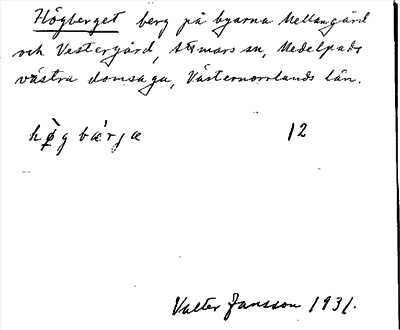 Högberget berg på byarna Mellangård
och Västergård, Attmars sn, Medelpads
västra domsaga, Västernorrlands län.
hø̀g bæŕjæ 12
Valter Jansson 1931.